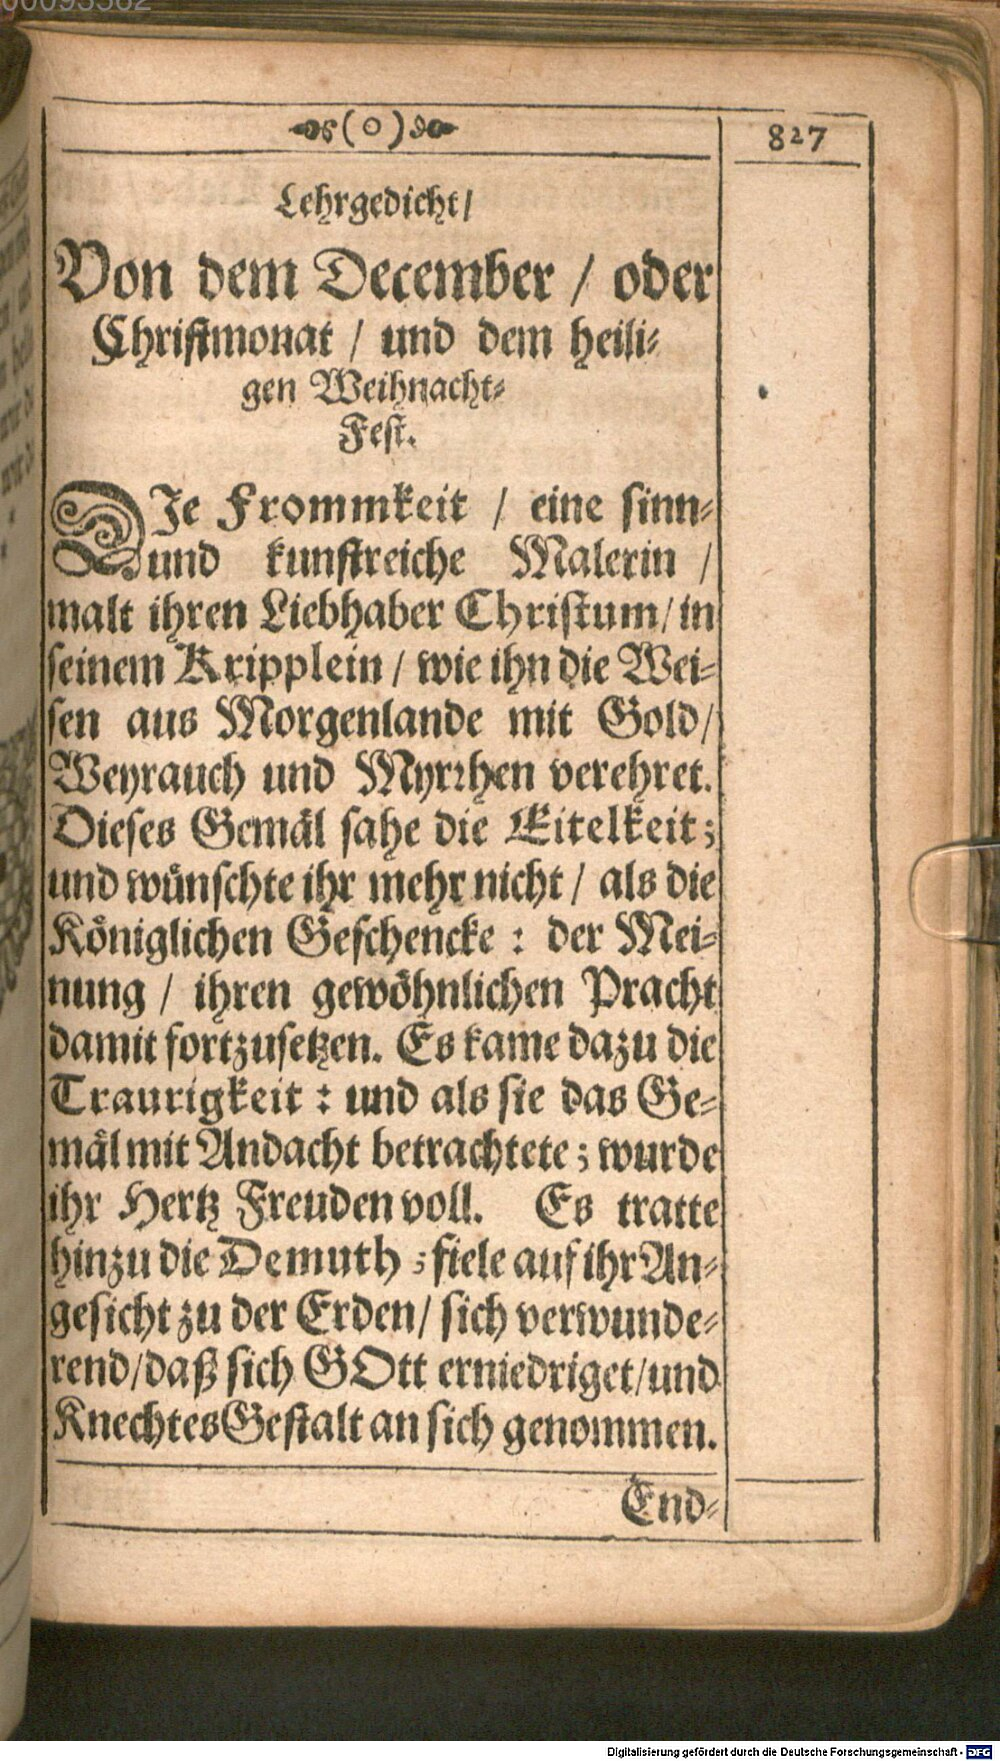 (o) 827
Lehrgedicht/
Von dem December / oder
Christmonat / und dem heili-
gen Weihnacht-
Fest.
DJe Frommkeit / eine sinn-
und kunstreiche Malerin /
malt ihren Liebhaber Christum/ in
seinem Kripplein / wie ihn die Wei-
sen aus Morgenlande mit Gold/
Weyrauch und Myrrhen verehret.
Dieses Gemäl sahe die Eitelkeit;
und wünschte ihr mehr nicht / als die
Königlichen Geschencke : der Mei-
nung / ihren gewöhnlichen Pracht
damit fortzusetzen. Es kame dazu die
Traurigkeit : und als sie das Ge-
mäl mit Andacht betrachtete ; wurde
ihr Hertz Freuden voll. Es tratte
hinzu die Demuth ; fiele auf ihr An-
gesicht zu der Erden/ sich verwunde-
rend/ daß sich GOtt erniedriget/ und
Knechtes Gestalt an sich genommen.
End-
Digitalisierung gefördert durch die Deutsche Forschungsgemeinschaft - DFG